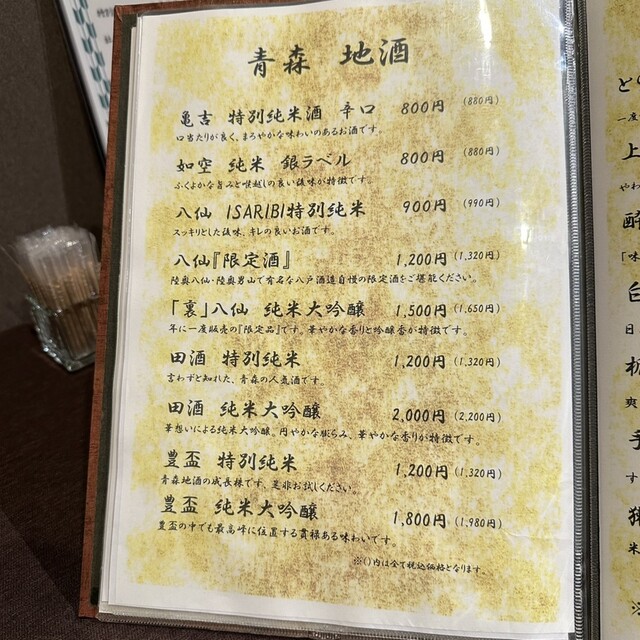 青森 地酒
亀吉 特別純米酒 辛口 800円 (880円)
口当たりが良く、まろやかな味わいのあるお酒です。
如空 純米 銀ラベル 800円 (880円)
ふくよかな旨みと喉越しの良い後味が特徴です。
八仙 ISARIBI特別純米 900円 (990円)
スッキリとした後味、キレの良いお酒です。
八仙『限定酒』 1,200円 (1,320円)
陸奥八仙・陸奥男山で有名な八戸酒造自慢の限定酒をご堪能ください。
「裏」八仙 純米大吟醸 1,500円 (1,650円)
年に一度販売の『限定品』です。華やかな香りと吟醸香が特徴です。
田酒 特別純米 1,200円 (1,320円)
言わずと知れた、青森の人気酒です。
田酒 純米大吟醸 2,000円 (2,200円)
華想いによる純米大吟醸。円やかな膨らみ、華やかな香りが特徴です。
豊盃 特別純米 1,200円 (1,320円)
青森地酒の成長株です、是非お試しください。
豊盃 純米大吟醸 1,800円 (1,980円)
豊盃の中でも最高峰に位置する貫禄ある味わいです。
※()内は全て税込価格となります。
一度
上
やわ
酔
「味
白
日
爽
手
す
米
※